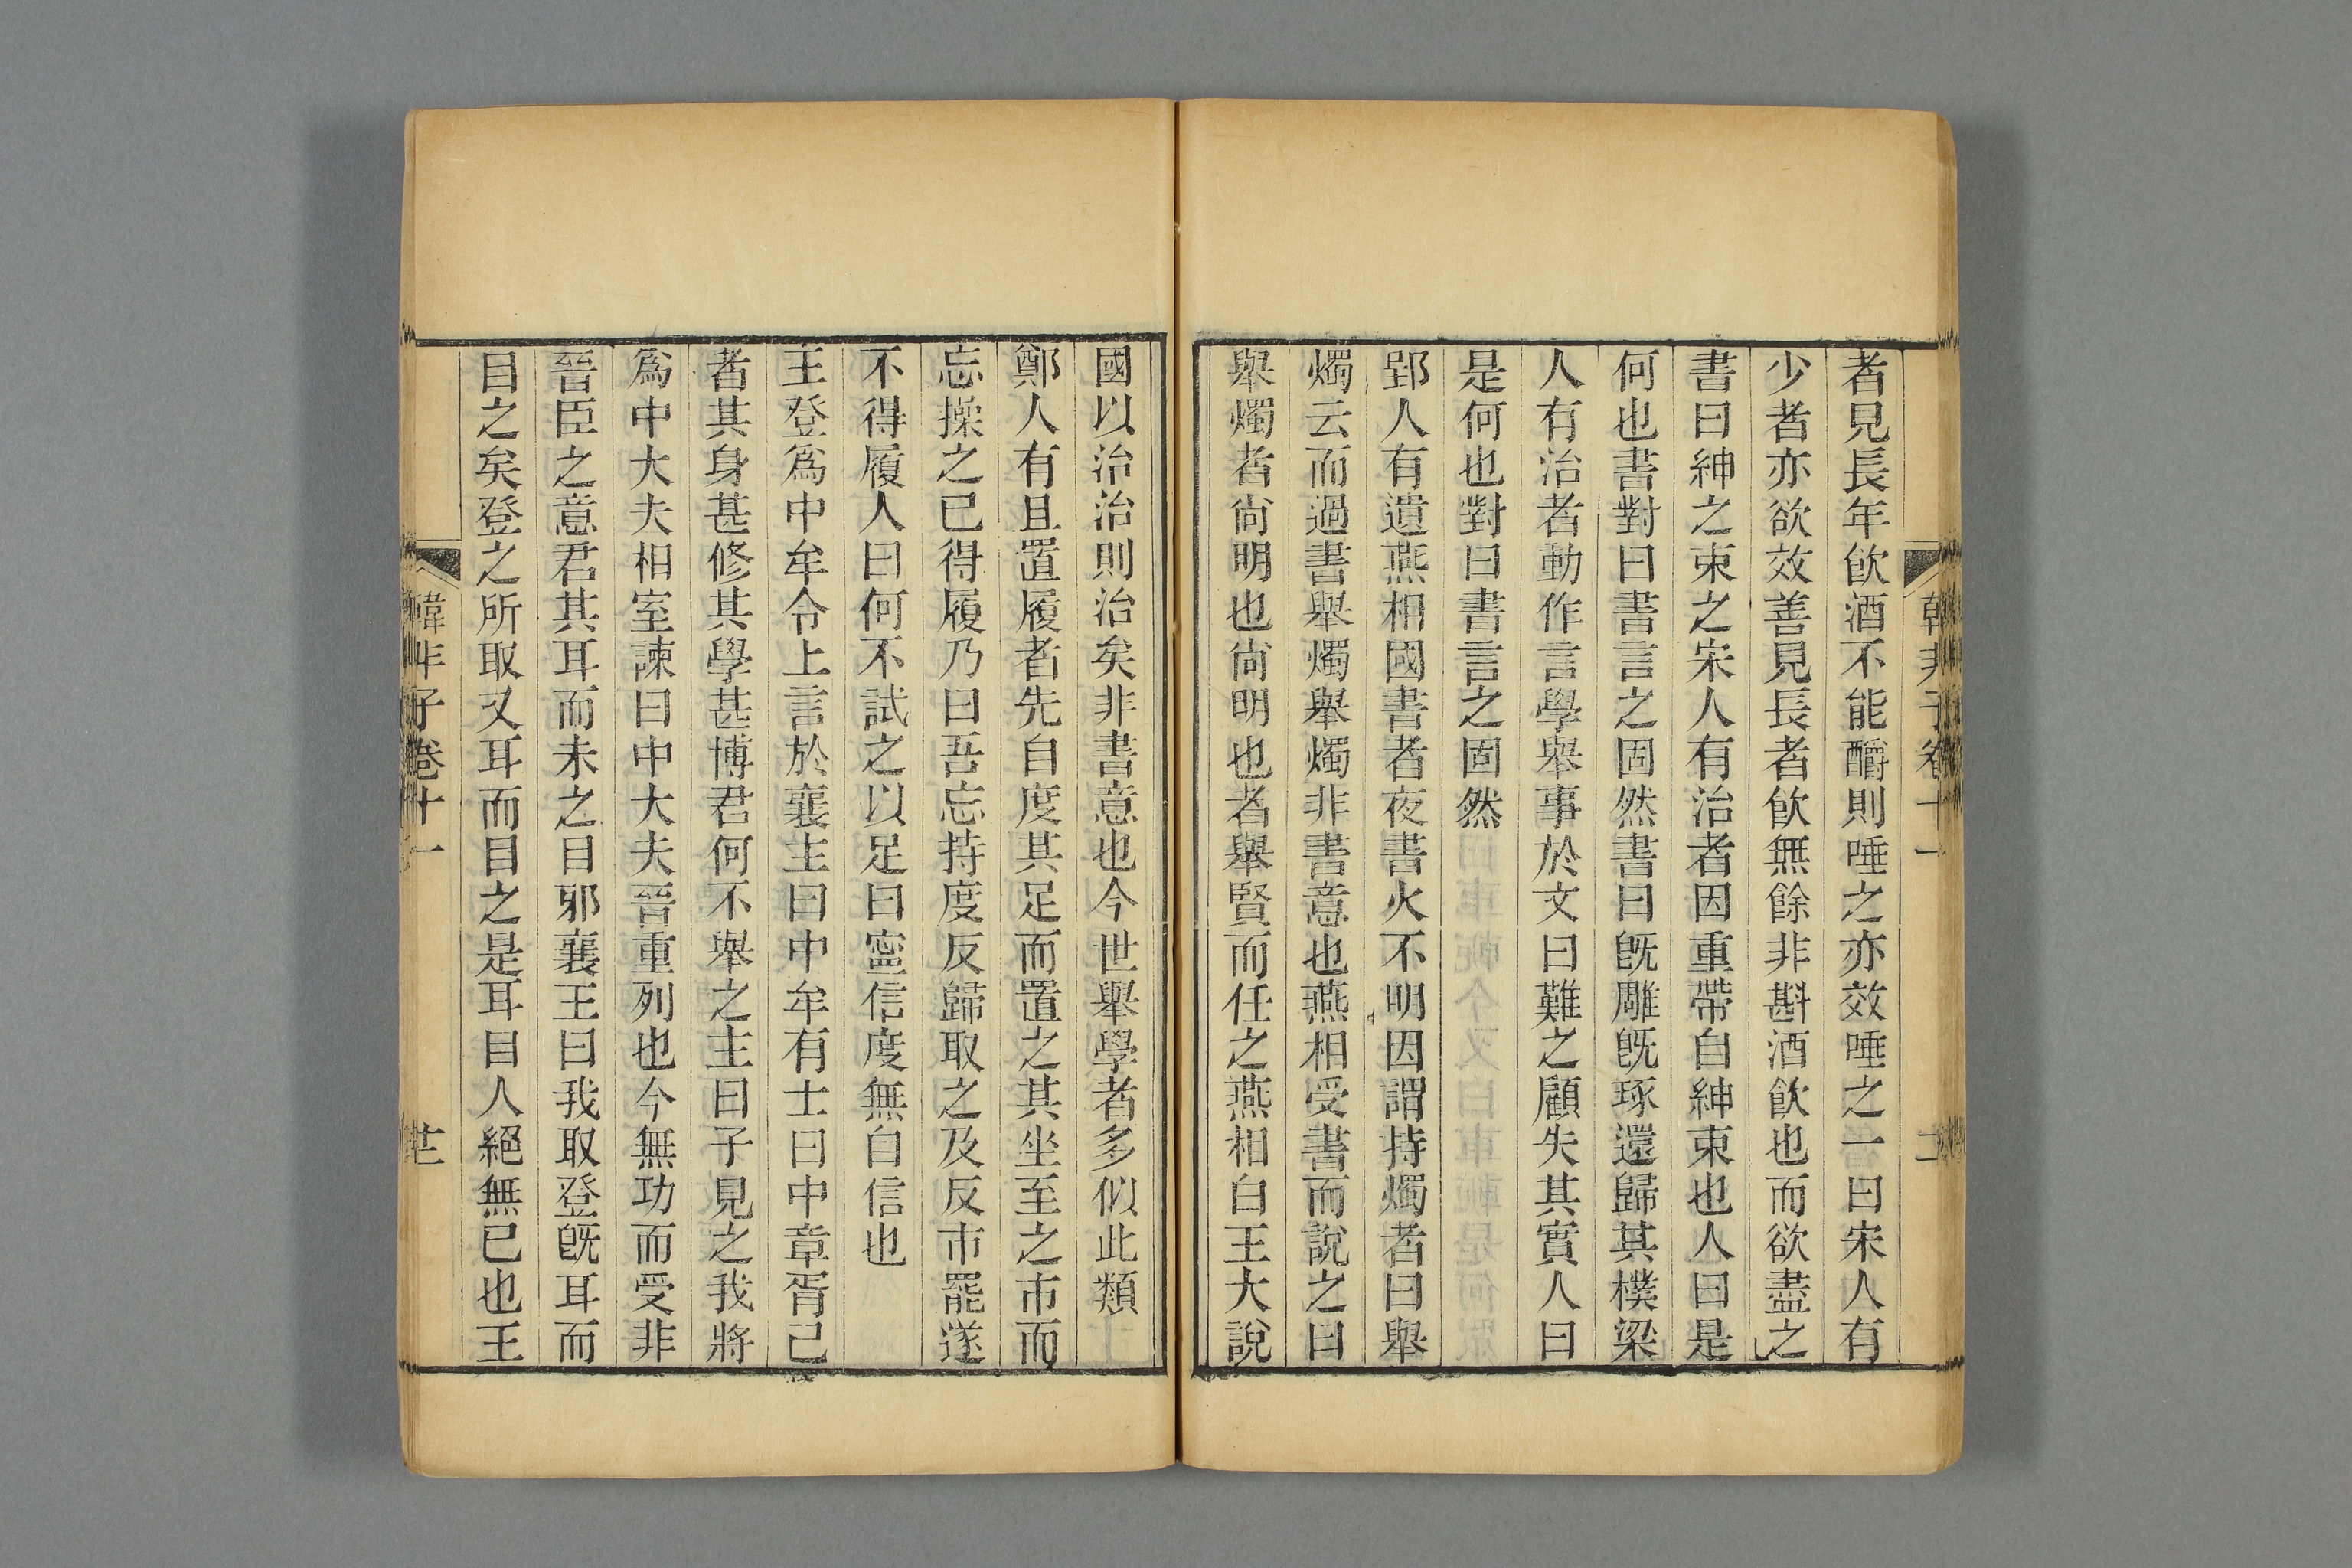 韓非子卷十一
者見長年飮酒不能釂則唾之亦效唾之一曰宋人有
少者亦欲效善見長者飮無餘非斟酒飮也而欲盡之
書曰紳之束之宋人有治者因重帶自紳束也人曰是
何也書對曰書言之固然書曰旣雕旣琢還歸其樸梁
人有治者動作言學舉事於文曰難之顧失其實人曰
是何也對曰書言之固然
郢人有遺燕相國書者夜書火不明因謂持燭者曰舉
燭云而過書舉燭舉燭非書意也燕相受書而說之曰
舉燭者尙明也尙明也者舉賢而任之燕相白王大說
國以治治則治矣非書意也今世舉學者多似此類
鄭人有且置履者先自度其足而置之其坐至之市而
忘操之已得履乃曰吾忘持度反歸取之及反市罷遂
不得履人曰何不試之以足曰寍信度無自信也
王登爲中牟令上言於襄主曰中牟有士曰中章胥己
者其身甚修其學甚博君何不舉之主曰子見之我將
爲中大夫相室諫曰中大夫晉重列也今無功而受非
晉臣之意君其耳而未之目邪襄王曰我取登旣耳而
目之矣登之所取又耳而目之是耳目人絕無已也王
韓非子卷十一